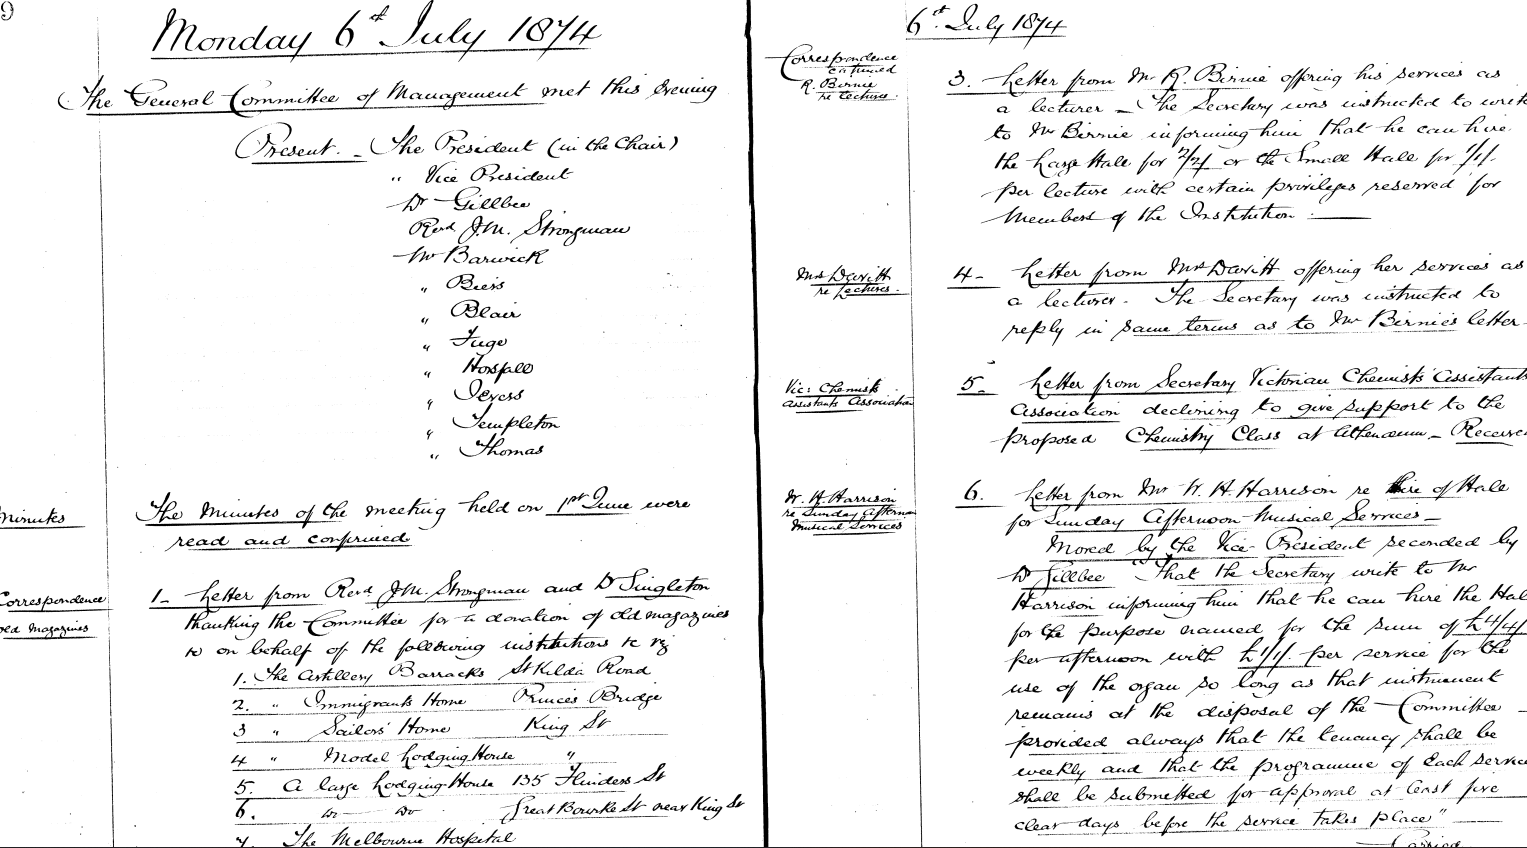 9
Monday 6th July 1874
The General Committee of Management met this Evening
Present. - The President (in the Chair)
" Vice President
Dr Gillbee
Revd J.M. Strongman
Mr Barwick
" Beers
" Blair
" Fuge
" Horsfall
" Jevers
" Templeton
" Thomas
Minutes
The Minutes of the meeting held on 1st June were
read and confirmed
Correspondence
old Magazines
1- Letter from Revd J.M. Strongman and Dr Singleton
thanking the Committee for a donation of old magazines
to on behalf of the following institutions &c viz
1. The Artillery Barracks St Kilda Road
2. " Immigrants Home Princes Bridge
3 " Sailors' Home King St
4 " Model Lodging House "
5. A large Lodging House 135 Flinders St
6. do do Great Bourke St near King St
7. The Melbourne Hospital
6th July 1874
Correspondence
continued
R. Birnie
re Lectures.
3. Letter from Mr R. Birnie offering his services as
a lecturer - The Secretary was instructed to write
to Mr Birnie informing him that he can hire
the Large Hall for 2/2/ or the Small Hall for 1/1/.
per lecture with certain privileges reserved for
Members of the Institution.
Mrs Davitt
re Lectures.
4- Letter from Mrs Davitt offering her services as
a lecturer. The Secretary was instructed to
reply in same terms as to Mr Birnie's letter
Vic: Chemists
Assistants Association
5- Letter from Secretary Victorian Chemists' Assistants
Association declining to give support to the
proposed Chemistry Class at Athenæum - Received
W. H. Harrison
re Sunday Afternoon
Musical Services
6. Letter from Mr W. H. Harrison re Hire of Hall
for Sunday Afternoon Musical Services -
Moved by the Vice-President seconded by
Dr Gillbee "That the Secretary write to Mr
Harrison informing him that he can hire the Hall
for the purpose named for the sum of £4/4/
per afternoon with £1/1/. per service for the
use of the organ so long as that instrument
remains at the disposal of the Committee -
provided always that the tenancy shall be
weekly and that the programme of Each service
shall be submitted for approval at least five
clear days before the service takes place" -
Carried